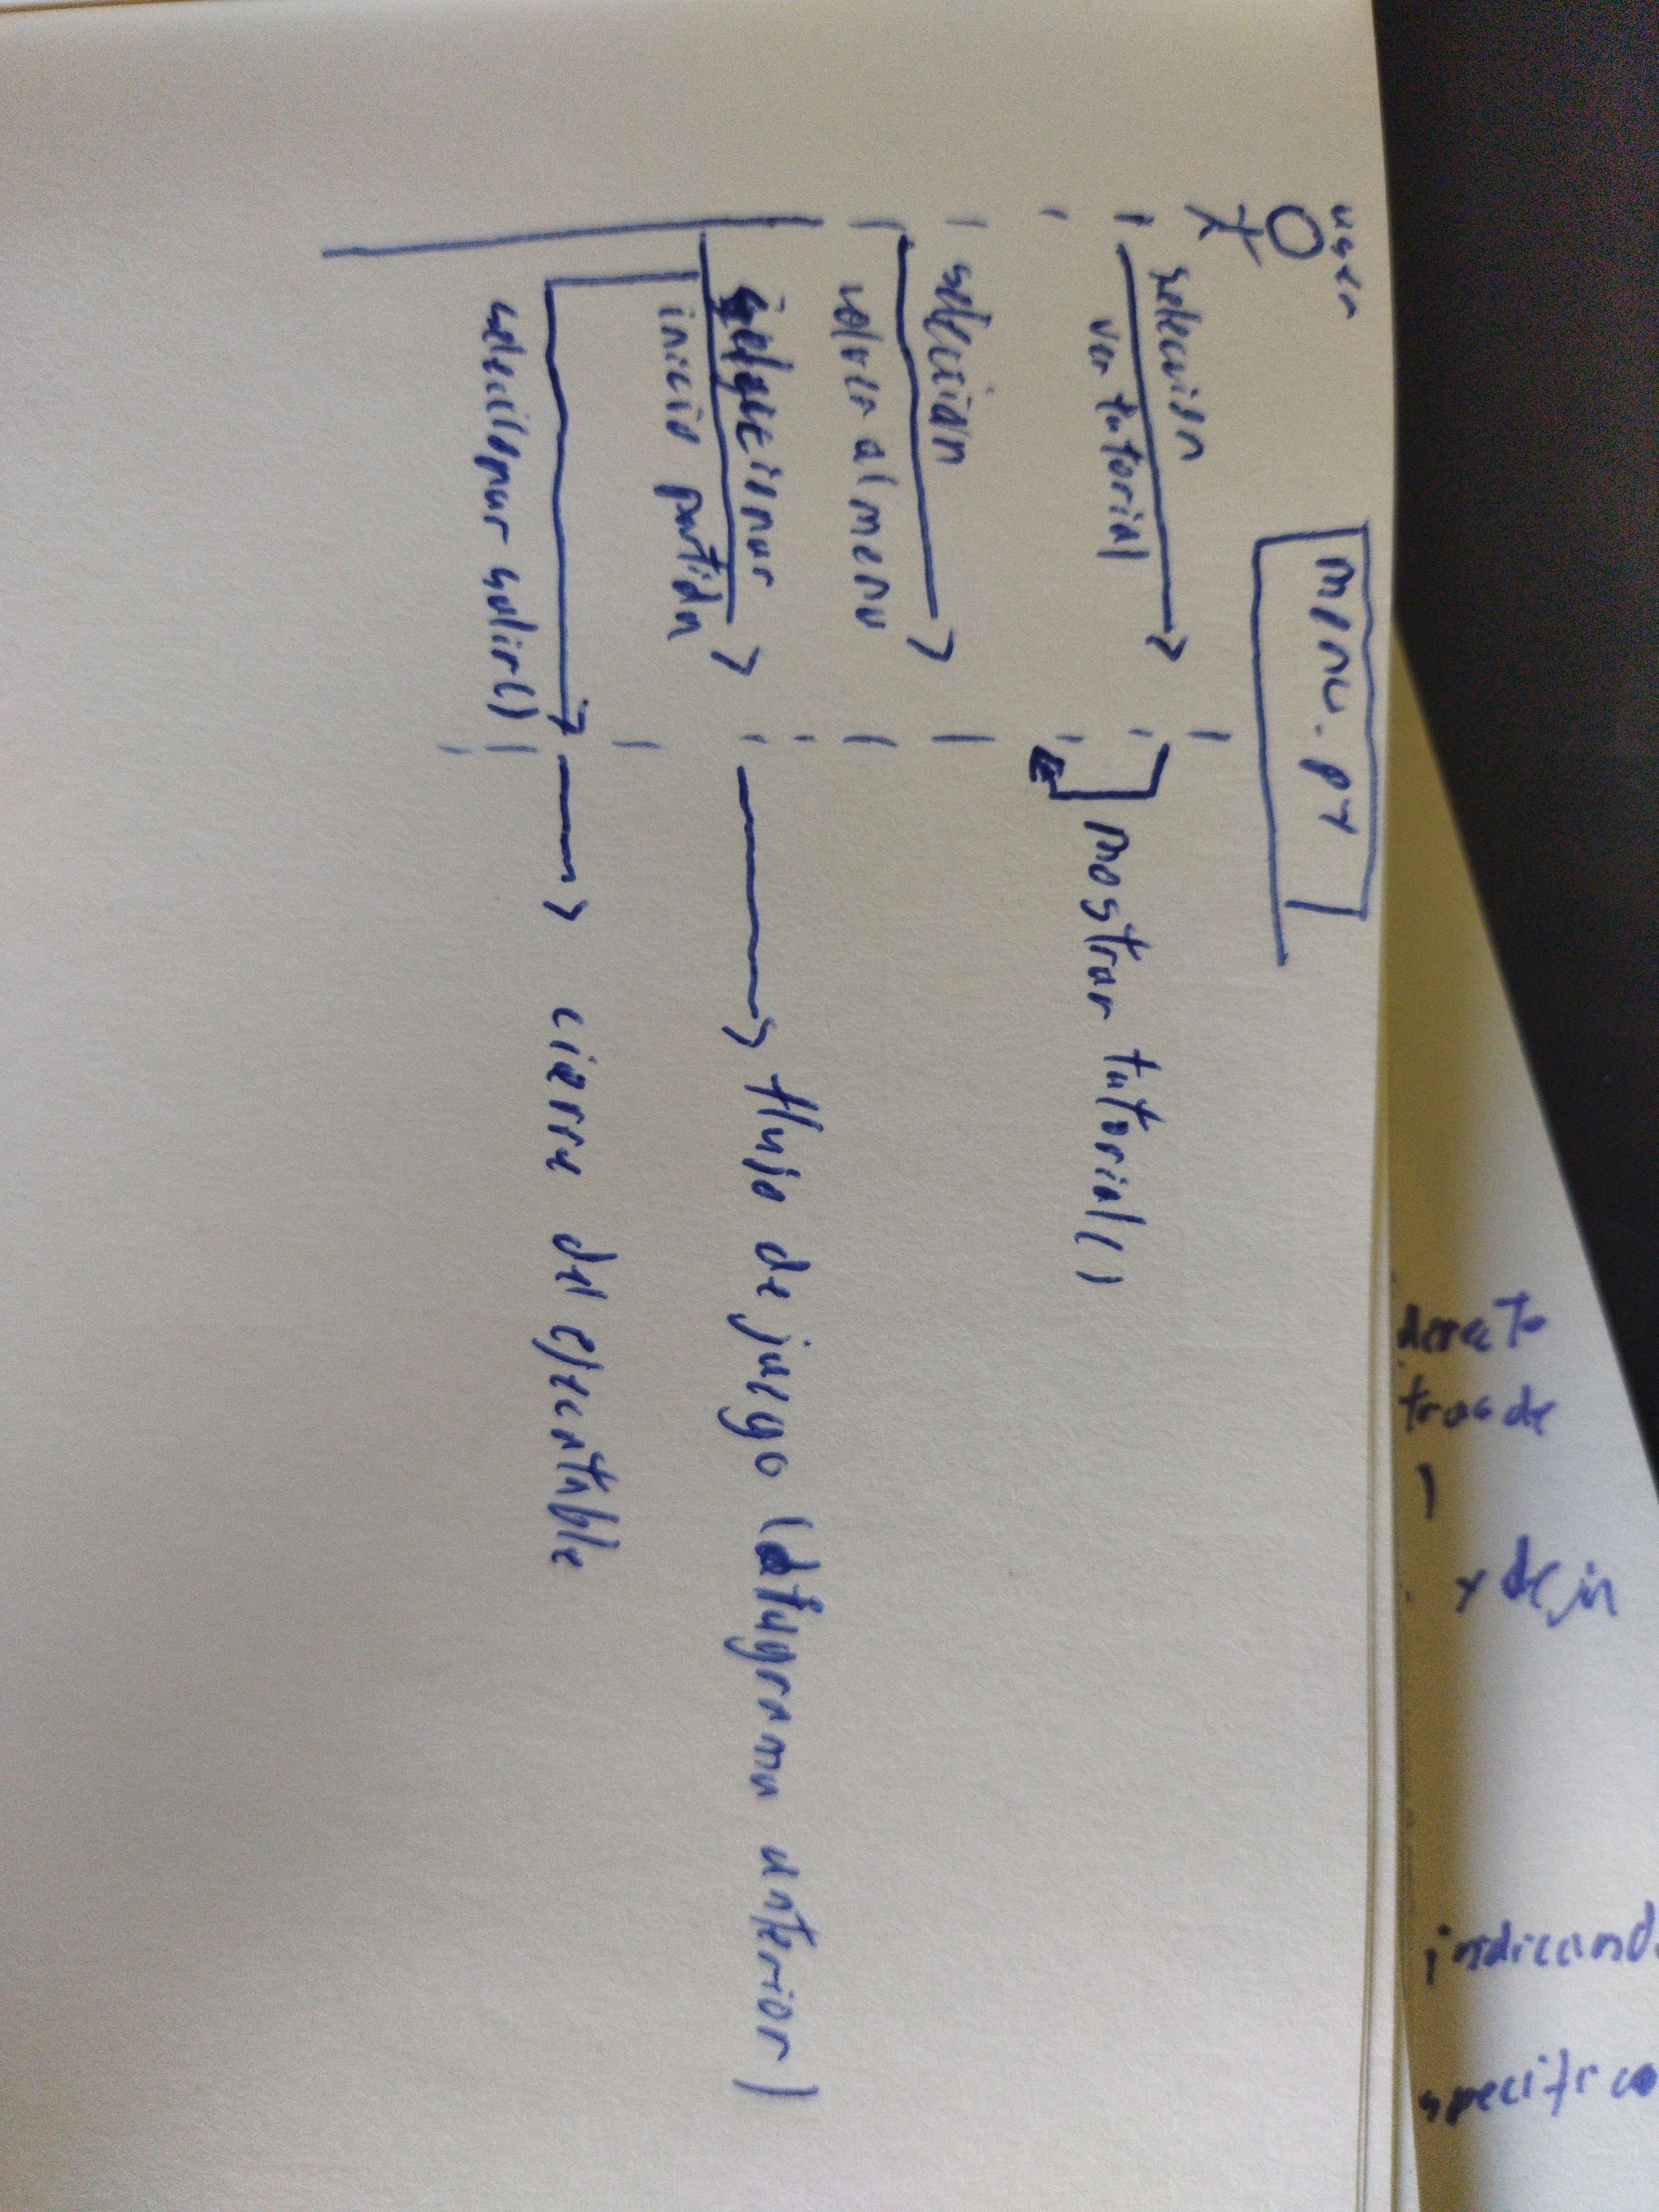 user
menu.py
selección
ver tutorial
mostrar tutorial()
selección
volver al menu
seleccionar
inicio partida
flujo de juego (diagrama anterior)
seleccionar salir()
cierre del ejecutable
directo
tras de
y dejn
indicand
specifico